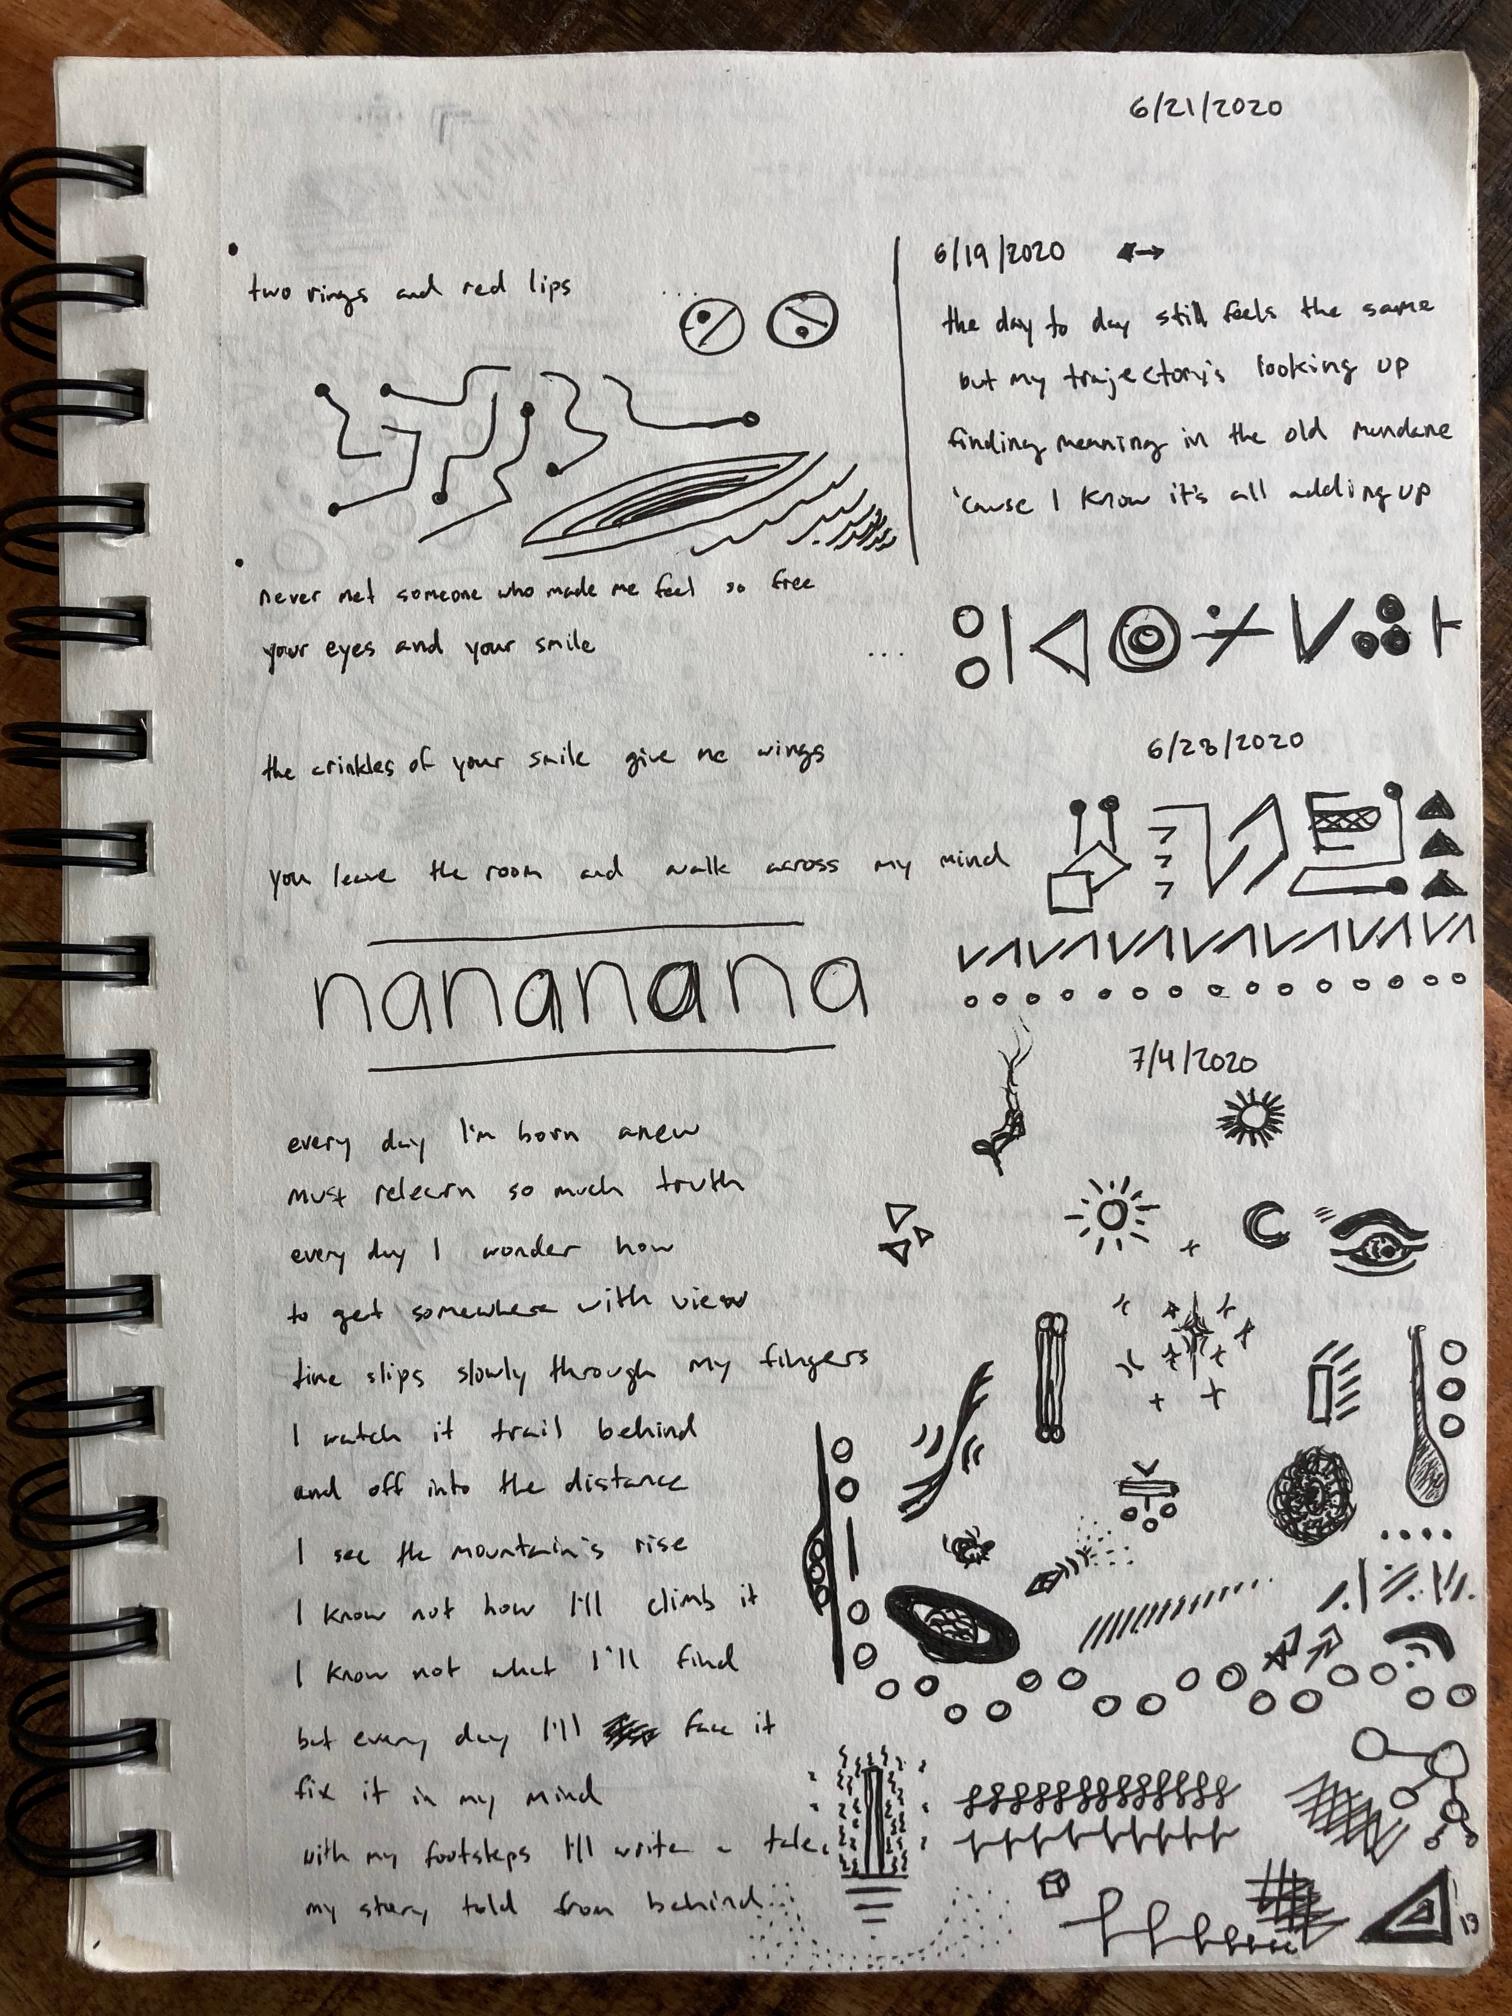 6/21/2020
two rings and red lips ...
6/19/2020
the day to day still feels the same
but my trajectory's looking up
finding meaning in the old mundane
'cause I know it's all adding up
never met someone who made me feel so free
your eyes and your smile ...
the crinkles of your smile give me wings
6/28/2020
you leave the room and walk across my mind
nanananana
7/4/2020
every day I'm born anew
must relearn so much truth
every day I wonder how
to get somewhere with view
time slips slowly through my fingers
I watch it trail behind
and off into the distance
I see the mountain's rise
I know not how I'll climb it
I know not what I'll find
but every day I'll face it
fix it in my mind
with my footsteps I'll write a tale,
my story told from behind
13